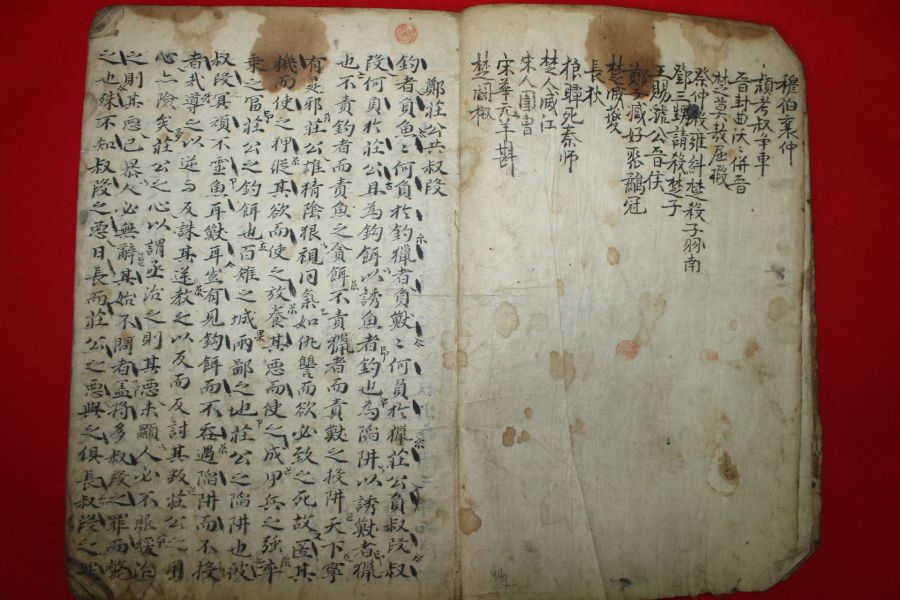 穆伯襄仲
潁考叔爭車
晉封曲沃〻併晉
楚莫敖屈瑕
祭仲殺雍糾 楚殺子南
鄧三甥請殺楚子
王賜虢公晉侯
鄭子臧好聚鷸冠
楚滅夔
長狄
狼瞫死秦師
楚人滅江
宋人圍曹
宋華元羊斟
楚鬪椒
鄭莊公共叔段
釣者負魚〻何負於釣獵者負獸〻何負於獵莊公負叔段叔
段何負於莊公且為鉤餌以誘魚者釣也為陷阱以誘獸者獵
也不責釣者而責魚之貪餌不責獵者而責獸之投阱天下寧
有是邪莊公雄猜陰狠視同氣如仇讐而欲必致之死故匿其
機而使之狎縱其欲而使之放養其惡而使之成甲兵之強卒
乘之官莊公之釣餌也百雉之城兩鄙之地莊公之陷阱也彼
叔段冥頑不靈魚耳獸耳豈有見鉤餌而不吞過陷阱而不投
者哉導之以逆而反誅其逆教之以反而反討其叛莊公之用
心亦險矣莊公之心以謂亟治之則其惡未顯人必不服緩治
之則其惡已暴人必無辭其始不問者盖將多叔段之罪而斃
之也殊不知叔段之惡日長而莊公之惡與之俱長叔段之罪